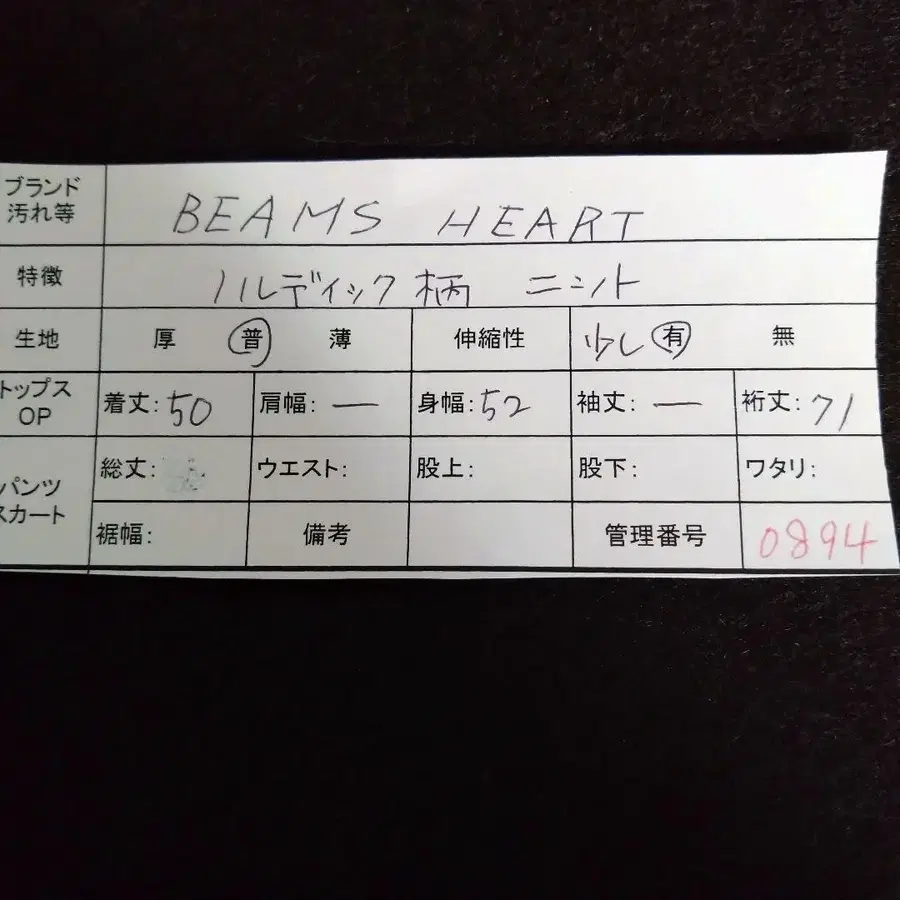 ブランド
汚れ等
BEAMS HEART
特徴
ノルディック柄 ニット
生地 厚 普 薄 伸縮性 少し 有 無
トップス
OP
着丈:50 肩幅:— 身幅:52 袖丈:— 裄丈:71
パンツ
スカート
総丈: ウエスト: 股上: 股下: ワタリ:
裾幅: 備考 管理番号 0894